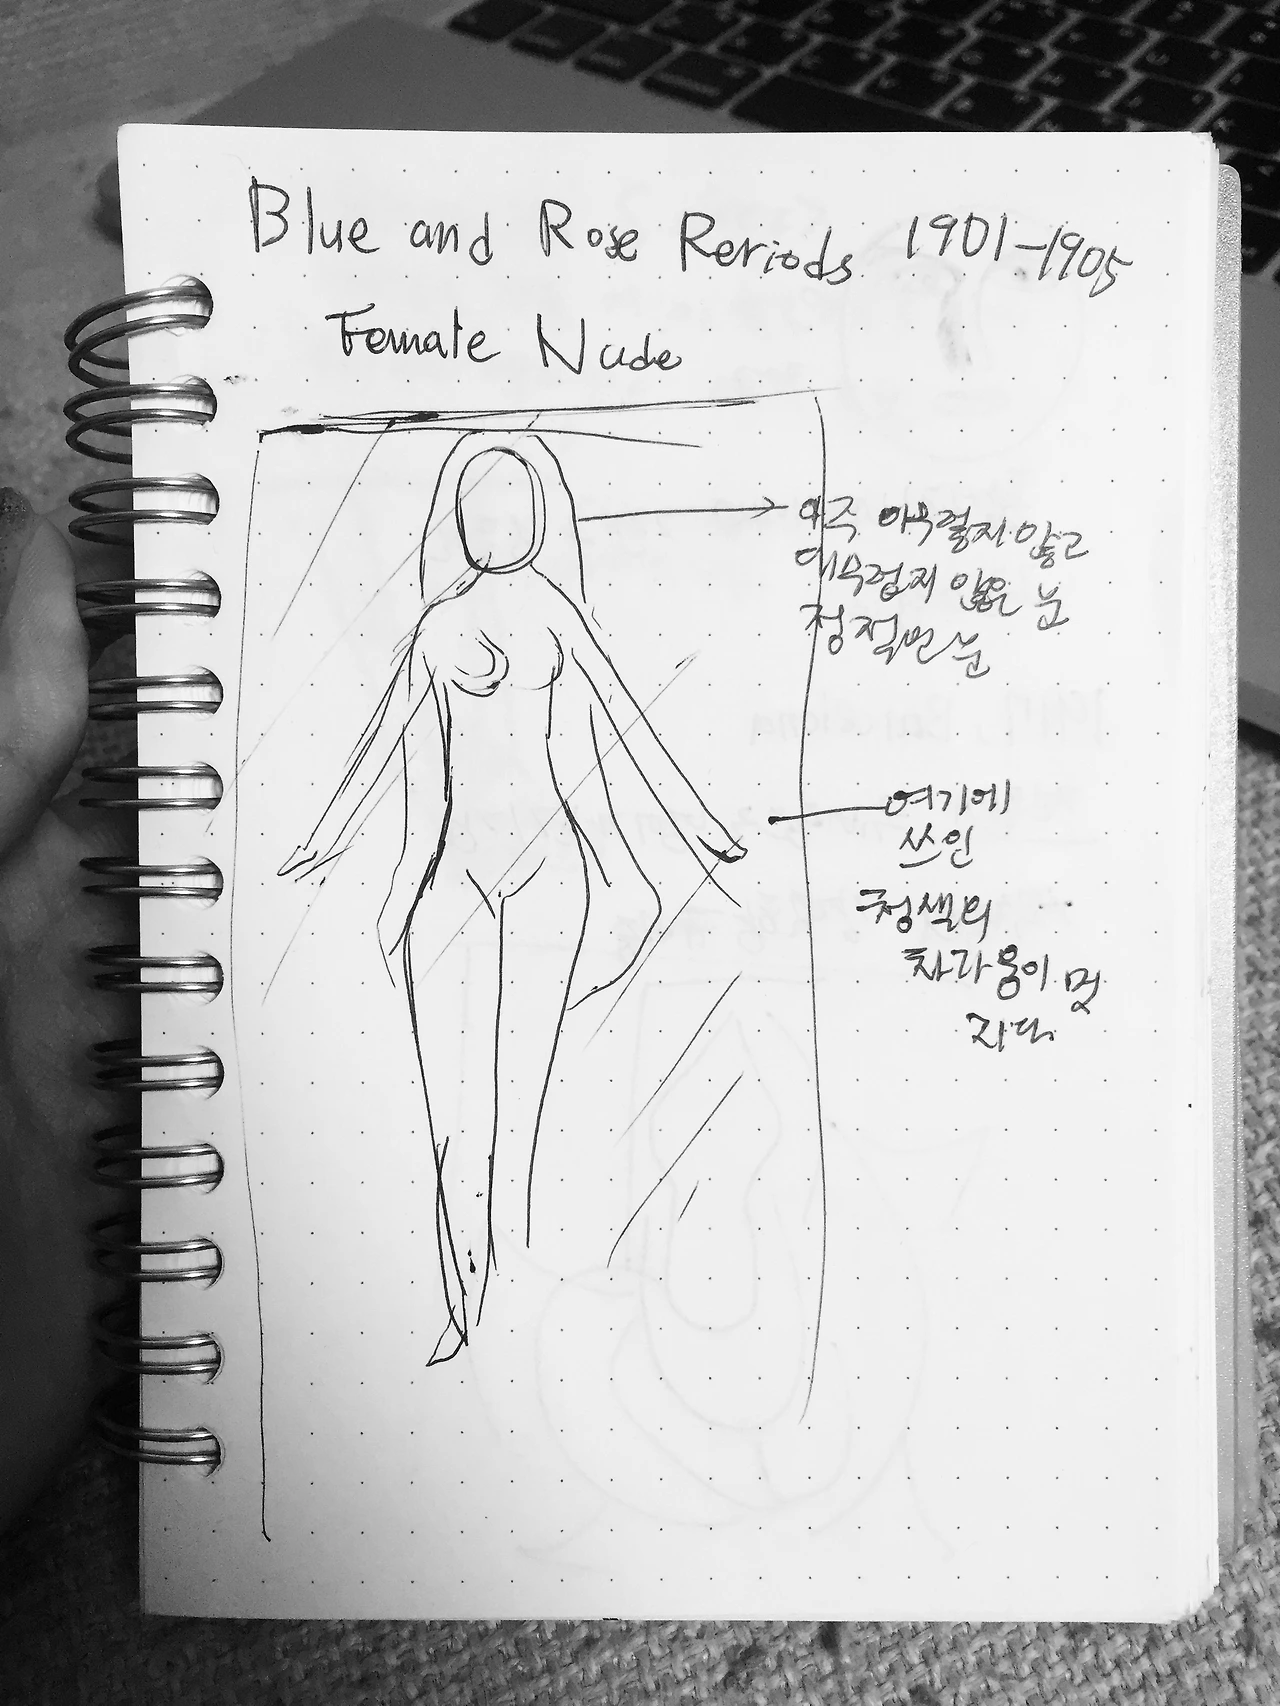 Blue and Rose Reriods 1901-1905
Female Nude
아주 아무렇지 않고
애무렵지 않은 눈
정적인 눈
여기에
쓰인
청색의
차가움이 멋
지다.